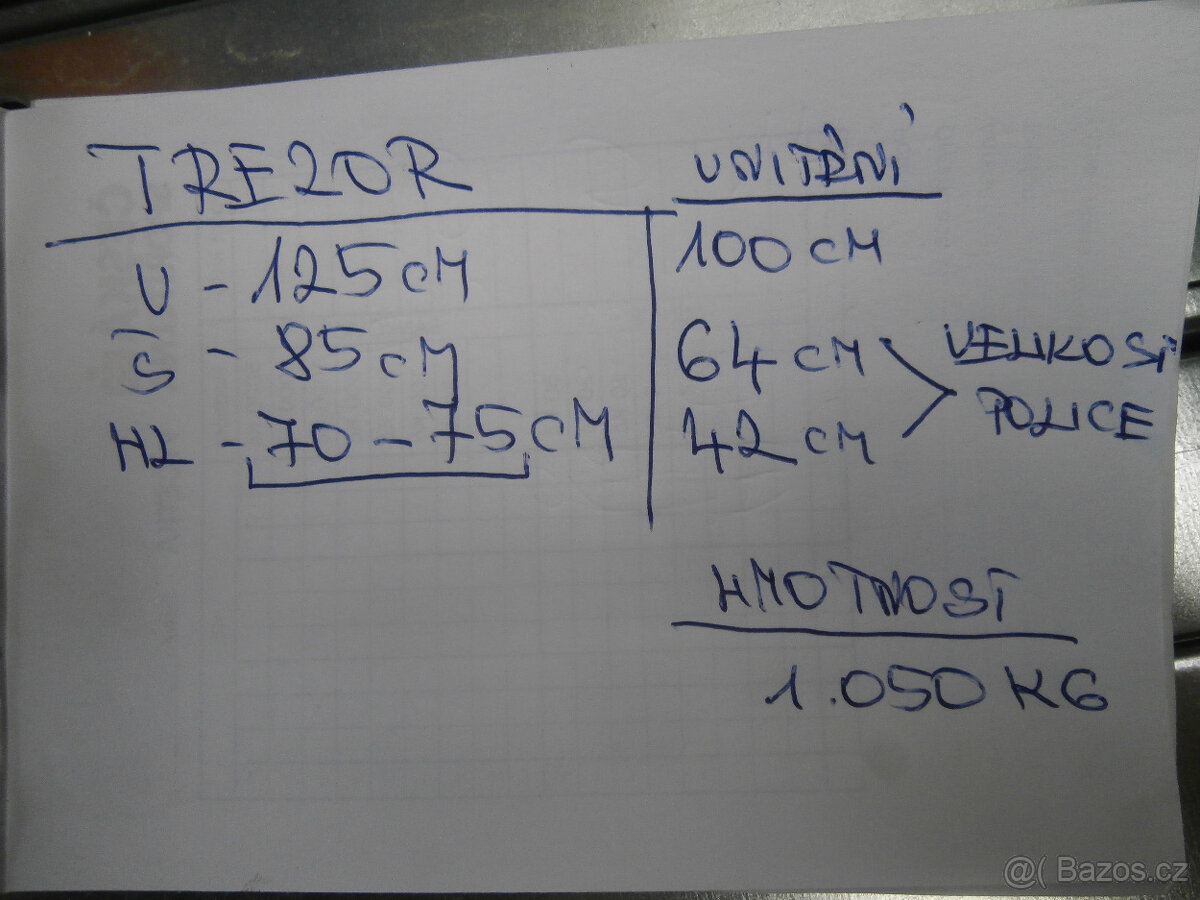 TREZOR
V - 125 CM
Š - 85 CM
HL - 70 - 75 CM
VNITŘNÍ
100 CM
64 CM
42 CM
VELIKOST
POLICE
HMOTNOST
1.050 KG
@( Bazos.cz